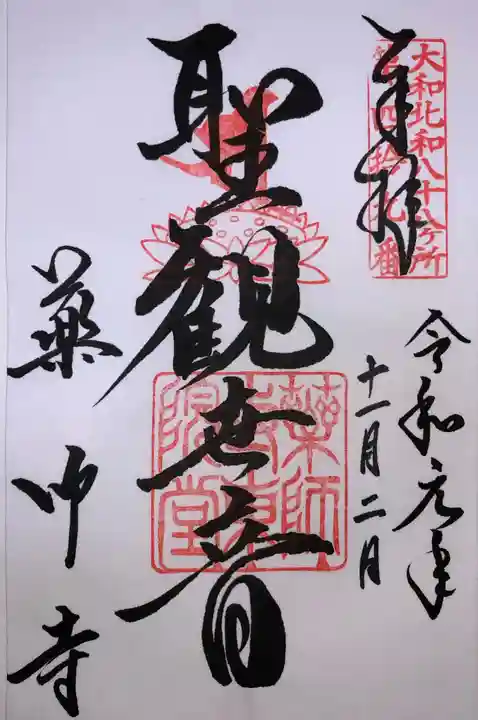 大和北和八十八ヶ所
第四拾九番
奉拝
令和元年
十一月二日
聖観世音
薬師
寺東
院堂
薬师寺